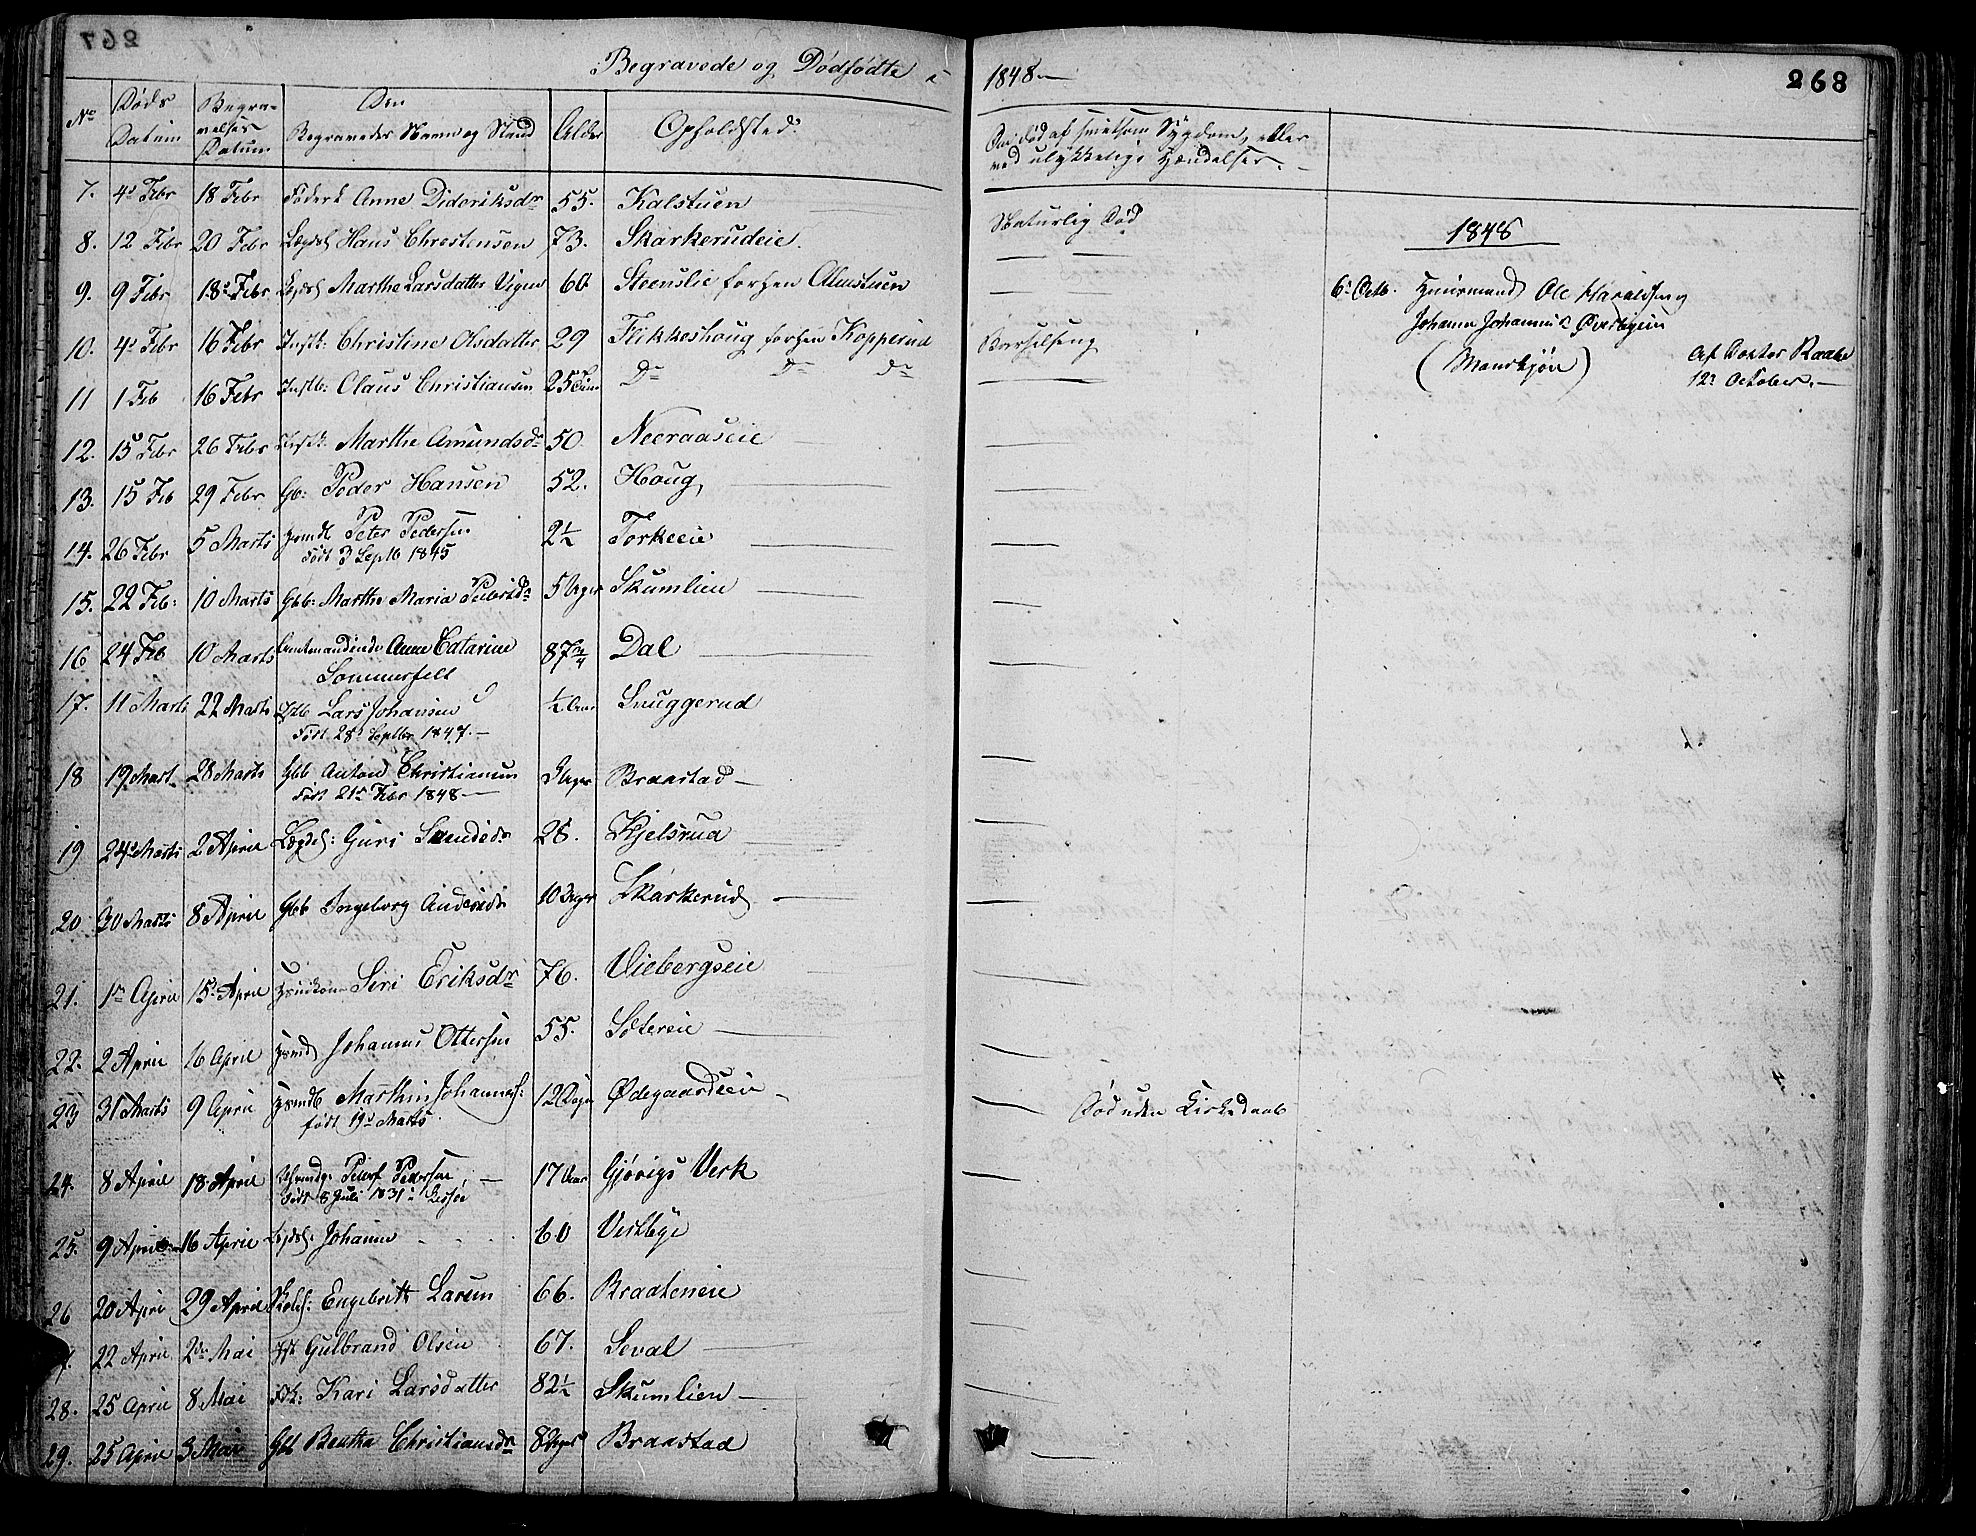 267
Begravede og Dødfødte i
1848
268
No
Døds Datum
Begravelses Datum
Den Begravedes Navn og Stand
Alder
Opholdsted.
Om død af smitsom Sygdom, eller ved ulykkelige Hændelser.
7. 4d Febr 18 Febr Føderk Anne Dideriksdr 55. Kalstuen Naturlig Død
8. 12 Febr 20 Febr Lægdsl Hans Christensen 73. Skarkerudeie.
9. 9 Febr 18d Febr Lægdsl Marthe Larsdatter Vigen 60 Steenslie forhen Almstuen
10. 4d Febr 16 Febr Christine Olsdatter 29 Flikkeshoug forhen Kopperud Barselseng
11 1 Feb 16 Febr Claus Christiansen 25 Do Do do
12. 15 Febr 26 Febr Marthe Amundsdr 50. Neeraaseie
13. 15 Feb 29 Febr Gb: Peder Hansen 52. Houg
14. 26 Febr 5 Marts Peter Pedersen 2½ Torkeeie
Født 3 Septb 1845
15. 22 Feb: 10 Marts Gbb: Marthe Maria Pedersdr 5 Uger Skumlien
16 24 Feb 10 Marts Amtmandinde Anne Catarine 87¾ Dal
Sommerfelt
17. 11 Marts 22 Marts Lars Johansen ½ Aar Snuggerud
Født 28d Septbr 1847.
18 19 Mart 28 Marts Gbb Anton Christiansen 3 Uger Braastad
Født 21de Febr 1848
19 24d Marts 2 April Lægdsl: Guri 28. Kjelsrud
20 30 Marts 8 April Gbb Ingeborg Andersdr 10 Uger Skarkerud
21. 1ste April 15d April Huuskone Siri Eriksdr 76. Viebergseie
22. 2 April 16 April Johannes Ottersen 55. Sætereie
23 31 Marts 9 April Marthin Johannes: 12 Dage Ødegaardseie Død uden Kirkedaab
født 19d Marts.
24. 8 April 18 April Peder Pedersen 17 Aar Gjøvigs Verk
Født 8 Juli 1831
25. 9 April 16 April Lægdsl. Johanne 60 Vestbye
26 20 April 29 April Engebrett Larsen 66. Braateneie
22 April 2den Mai Gulbrand Olsen 67. Seval
28. 25 April 8 Mai Kari Larsdatter 82½ Skumlien
29. 25 April 3 Mai Gbb Bertha Christiansdr 8 Uger Braastad
1848
6d Octb. Huusmand Ole Haraldsen og
Johanne Johannesd
(Mandkjøn)
Af Doctor Raabe
12d October.